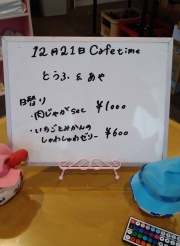 12月21日 Cafetime
とうふ & あや
日替り
・肉じゃがset ¥1000
・いちごとみかんの
しゅわしゅわゼリー ¥600